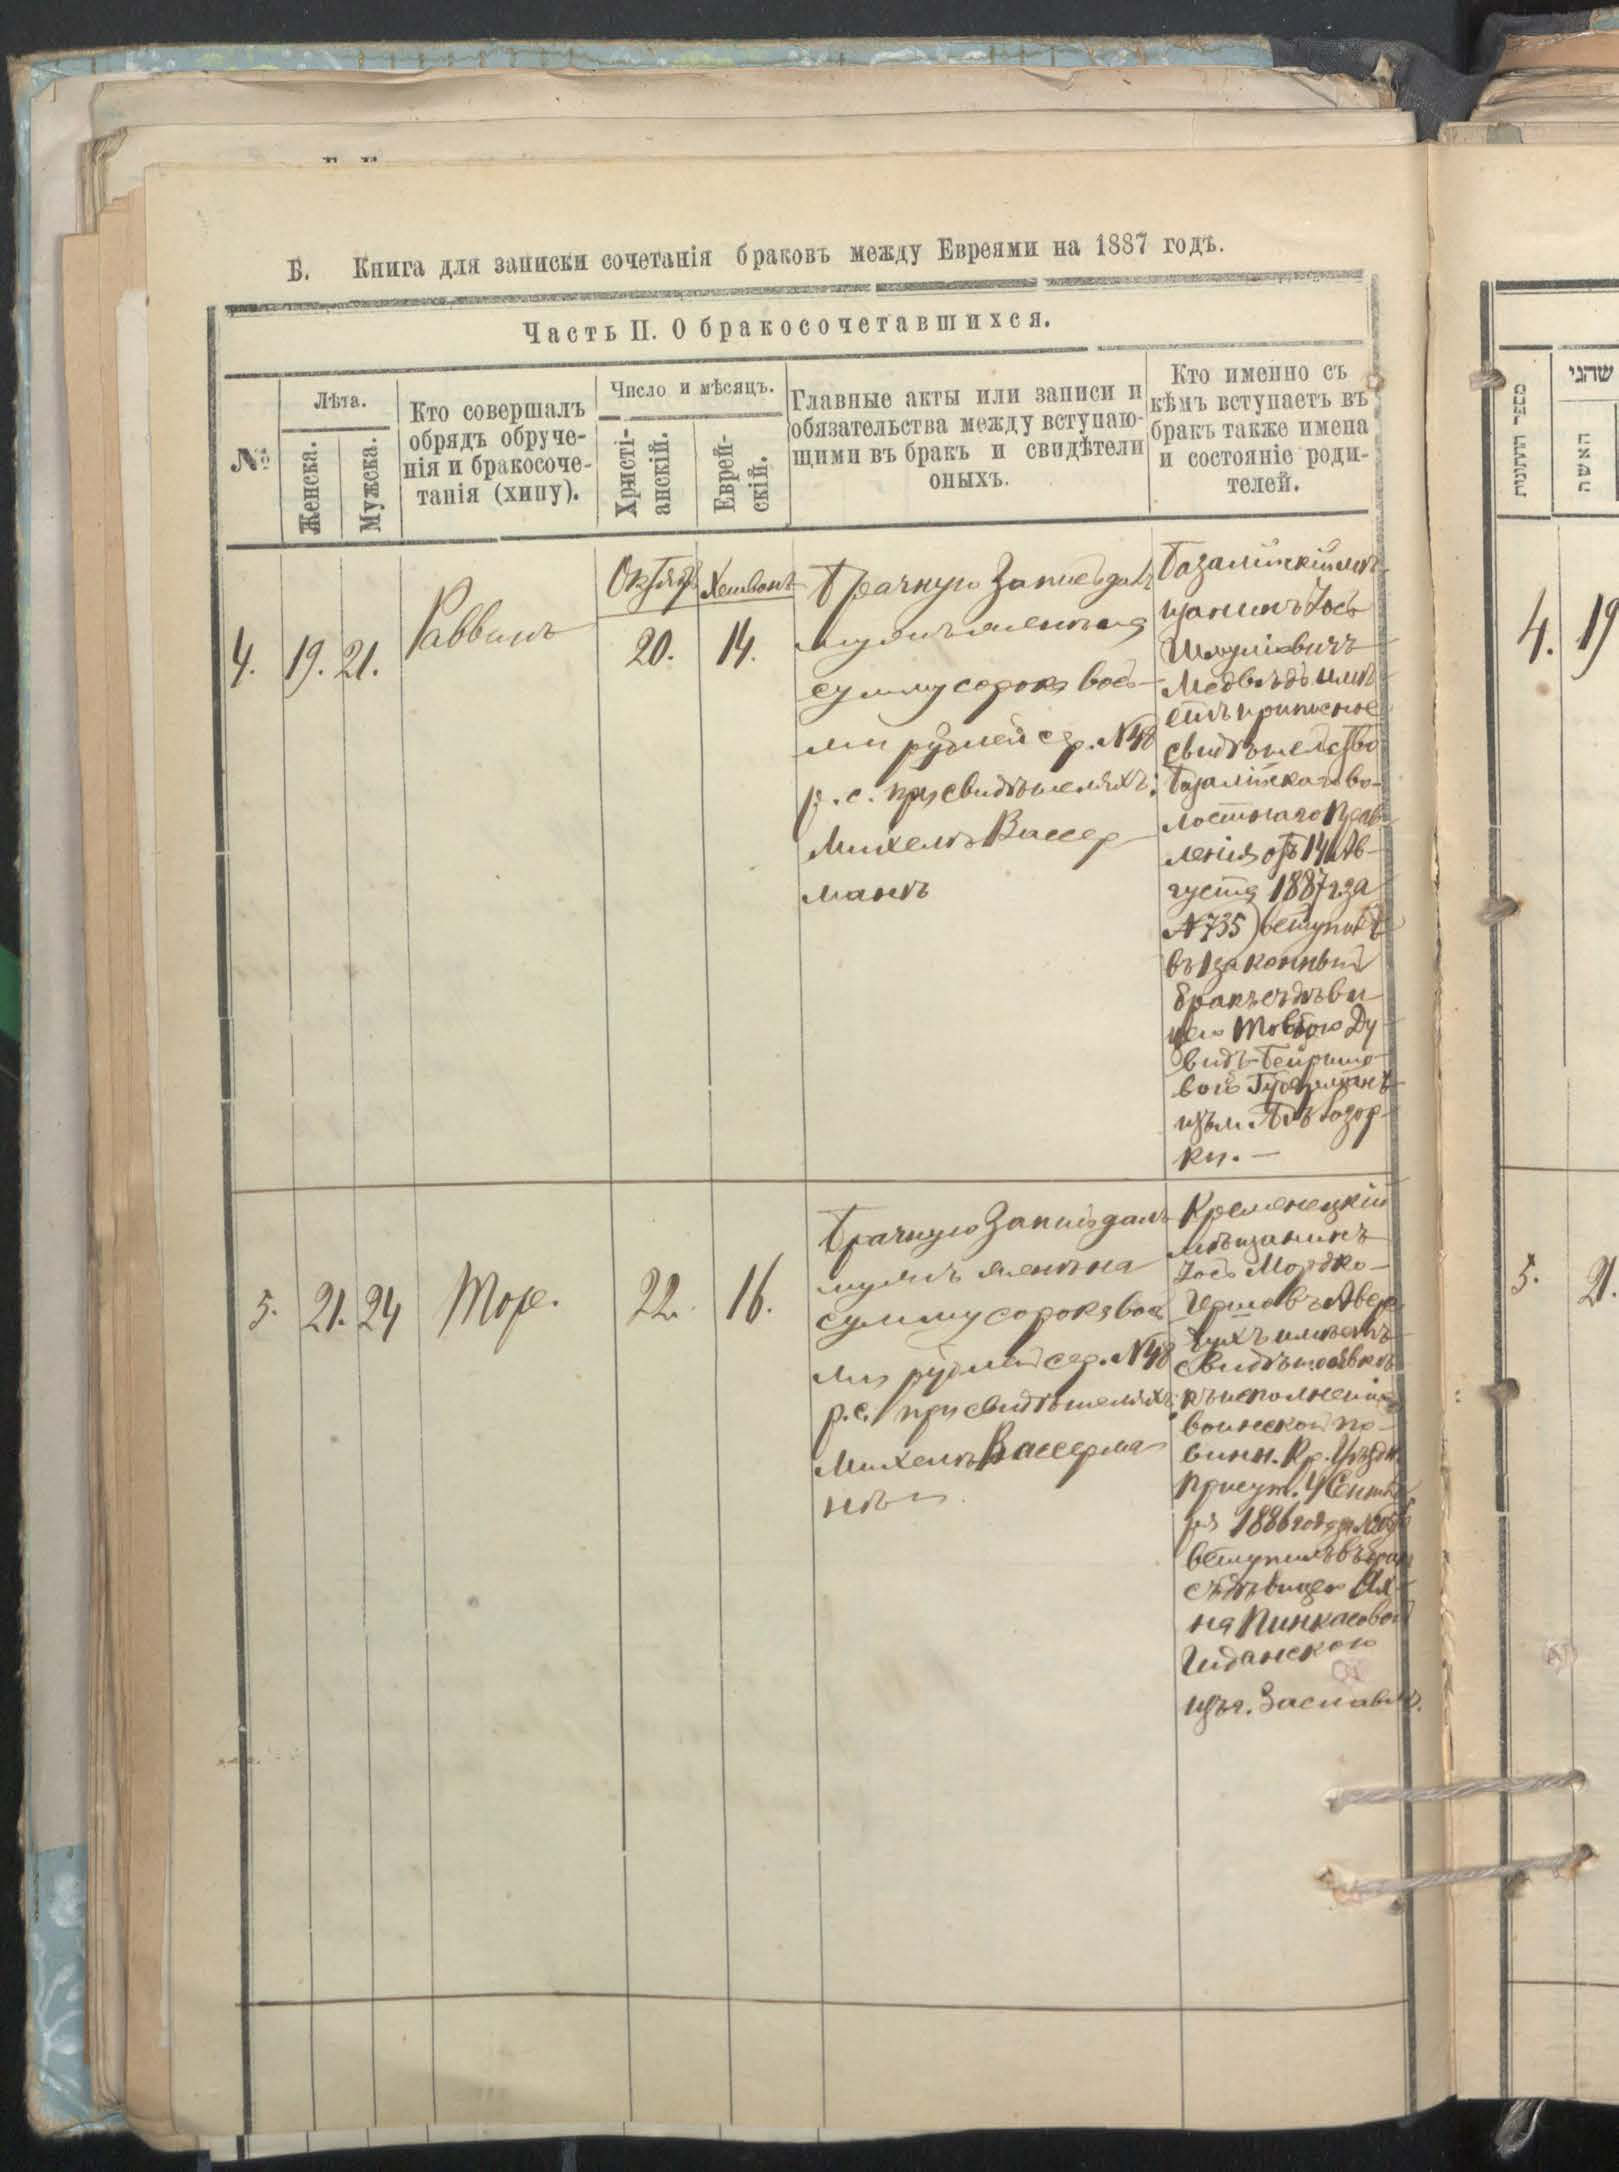 Б. Книга для записки сочетанія браковъ между Евреями на 1887 годъ.
Часть II. О бракосочетавшихся.
№
Лѣта.
Женска.
Мужска.
Кто совершалъ
обрядъ обруче-
нія и бракосоче-
танія (хипу).
Число и мѣсяцъ.
Христі-
анскій.
Еврей-
скій.
Главные акты или записи и
обязательства между вступаю-
щими въ бракъ и свидѣтели
оныхъ.
Кто именно съ
кѣмъ вступаетъ въ
бракъ также имена
и состояніе роди-
телей.
4.
19.
21.
Раввинъ
Октяб.
20.
Хешванъ
14.
Брачную Запись далъ
мужъ женѣ на
сумму сорокъ вось-
ми рублей сер. N48
р. с. при свидѣтеляхъ:
Михель Вассер-
манъ
Базалійскій мѣ-
щанинъ Іось
Шмуліовичъ
Медвѣдь имѣ-
етъ приписное
свидѣтельство
Базалійскаго во-
лостнаго Прав-
ленія отъ 14 Ав-
густа 1887 г. за
N735) вступилъ
въ законный
бракъ съ дѣви-
цею Товбою Ду-
видъ-Бейришо-
вою
изъ м.
ки. —
5.
21.
24
Море.
22.
16.
Брачную Запись далъ
мужъ женѣ на
сумму сорокъ вось
ми рублей сер. N48
р.с. при свидѣтеляхъ:
Михель Вассерма
нъ
Кременецкій
мѣщанинъ
Іось Мордко-
Гершовъ Авер
бухъ имѣетъ
свидѣт. о явкѣ
къ исполненію
воинской по-
винн. Кр. Уѣздн.
Присут. 4 Сентяб
ря 1886 года
вступилъ въ бракъ
съ дѣвицею
на Пинкасовой
изъ г. Заславля.
מספר החתונות
שהני
האשה
4.
19
5.
21.